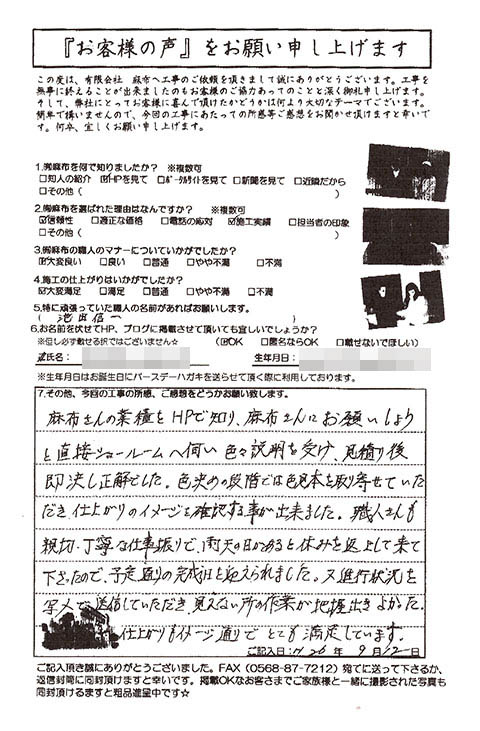 『お客様の声』をお願い申し上げます
この度は、有限会社 麻布へ工事のご依頼を頂きまして誠にありがとうございます。工事を
無事に終えることが出来ましたのもお客様のご協力あってのことと深く御礼申し上げます。
そして、弊社にとってお客様に喜んで頂けたかどうかは何より大切なテーマでございます。
簡単で構いませんので、今回の工事にあたっての所感等ご感想をお聞かせ頂けますと幸いで
す。何卒、宜しくお願い申し上げます。
1.㈲麻布を何で知りましたか? ※複数可
□知人の紹介 ☑HPを見て □ポータルサイトを見て □新聞を見て □近隣だから
□その他( )
2.㈲麻布を選ばれた理由はなんですか? ※複数可
☑信頼性 □適正な価格 □電話の応対 ☑施工実績 □担当者の印象
□その他( )
3.㈲麻布の職人のマナーについていかがでしたか?
☑大変良い □良い □普通 □やや不満 □不満
4.施工の仕上がりはいかがでしたか?
☑大変満足 □満足 □普通 □やや不満 □不満
5.特に頑張っていた職人の名前があればお願いします。
( 池田信一 )
6.お名前を伏せてHP、ブログに掲載させて頂いても宜しいでしょうか?
※但し必ず載せる訳ではございません☆ (☑OK □匿名ならOK □載せないでほしい)
氏名: 生年月日:
※生年月日はお誕生日にバースデーハガキを送らせて頂く際に利用しております。
7.その他、今回の工事の所感、ご感想をどうかお願い致します。
麻布さんの業種をHPで知り、麻布さんにお願いしよう
と直接ショールームへ伺い色々説明を受け、見積り後
即決し正解でした。色決めの段階では色見本を取り寄せていた
だき仕上がりのイメージを確認する事が出来ました。職人さんも
親切・丁寧な仕事振りで、雨天の日があると休みを返上して来て
下さったので、予定通りの完成日を迎えられました。又進行状況を
写メで送信していただき、見えない所の作業が把握出きよかった。
仕上がりもイメージ通りでとても満足しています。
ご記入日:H26年9月12日
ご記入頂き誠にありがとうございました。FAX(0568-87-7212)宛てに送って下さるか、
返信封筒に同封頂けますと幸いです。掲載OKなお客さまでご家族様と一緒に撮影された写真も
同封頂けるますと粗品進呈中です☆